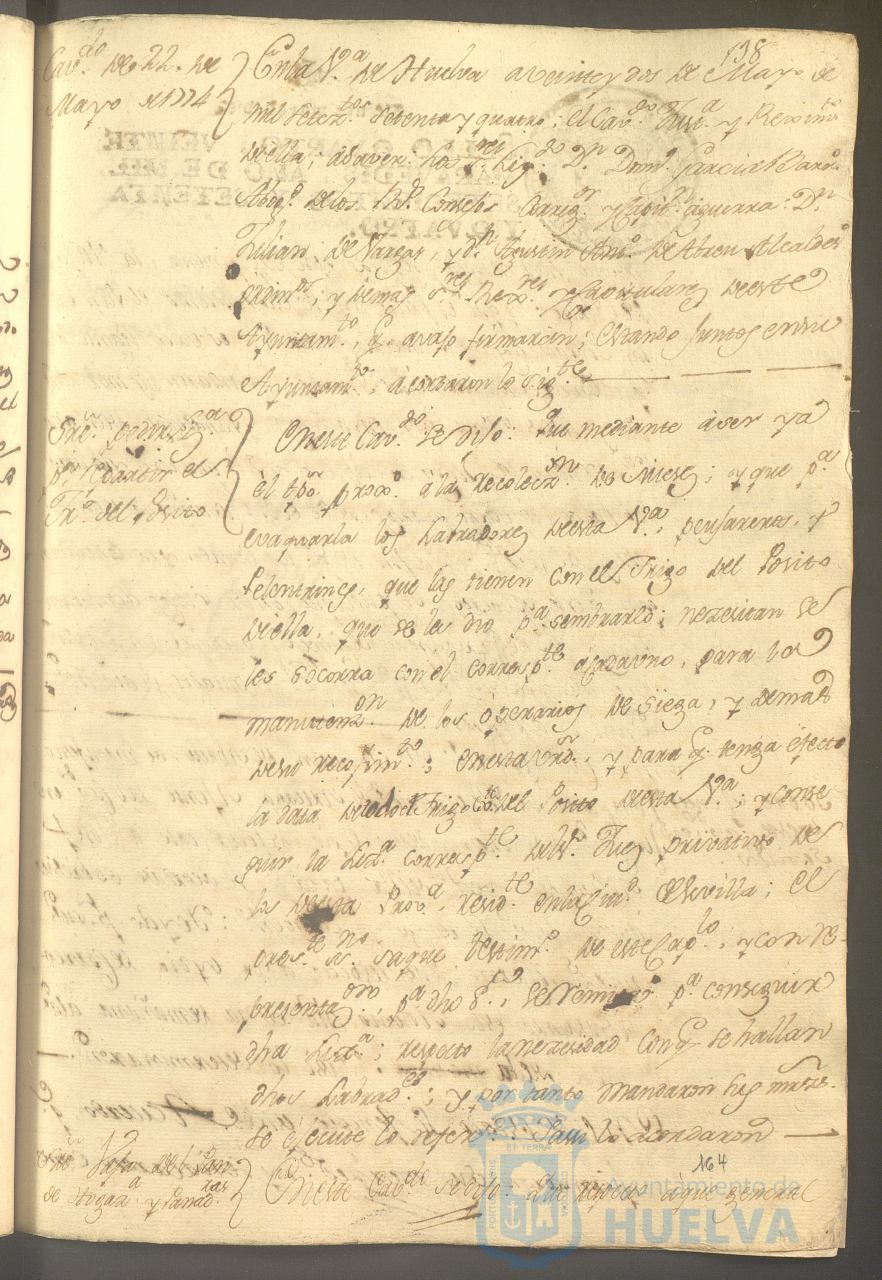 138
Cav.do de 22. de
Mayo de 1774
En la V.a de Huelva a veinte y dos de Mayo de
mil setez.tos setenta y quatro; el Cav.do Just.a y Reximto
de ella; a saver los S.res Liz.do D.n Dom.o Garcia
Abog.o de los R.s Consejos Correg.or y Capit.n a guerra: D.n
Julian de Vargas, y d.n Agustin Ant.o de Abreu Alcaldes
ordin.os; y demas S.res Rex.res y Capitulares de este
Ayuntam.to, q. avajo firmaran; estando juntos en su
Ayuntam.to, acordaron lo sig.te
Sre. pedir Liz.a
p.a repartir el
Tr.o del Posito
En este Cav.do se dijo: Que mediante a ser ya
el tpo. prox.o a la recolecz.on de Mieses; y que p.a
evaquarla los Labradores de esta V.a, pensarenes, y
Pelentrines, que las tienen con el Trigo del Posito
de ella, que se les dio p.a sembrarlo; nezesitan se
les socorra con el corresp.te para la
manutenz.on de los operarios de sieza, y demas
de su recojim.to; en esta vrd., y para q. tenga efecto
la data de todo el trigo del Posito de esta V.a; y conse
guir la Liz.a corresp.te del S. Juez privativo de
la de esta Prov.a resid.te en la Ciu.d de Sevilla; el
pres.te S.no saque testim.o de este Cap.lo, y con re-
presentaz.on, p.a dho S.or, se remita p.a conseguir
dha Liz.a; respecto la nezesidad con q. se hallan
dhos Labrad.es; y por tanto mandaron sus mrzs.
se ejecute lo refer.do. Y asi lo acordaron
Sre. Faja del Pan
de Hogaza y Panad.ras
En este Cav.do se dijo: Que respecto a que general
164
Ayuntamiento de
HUELVA